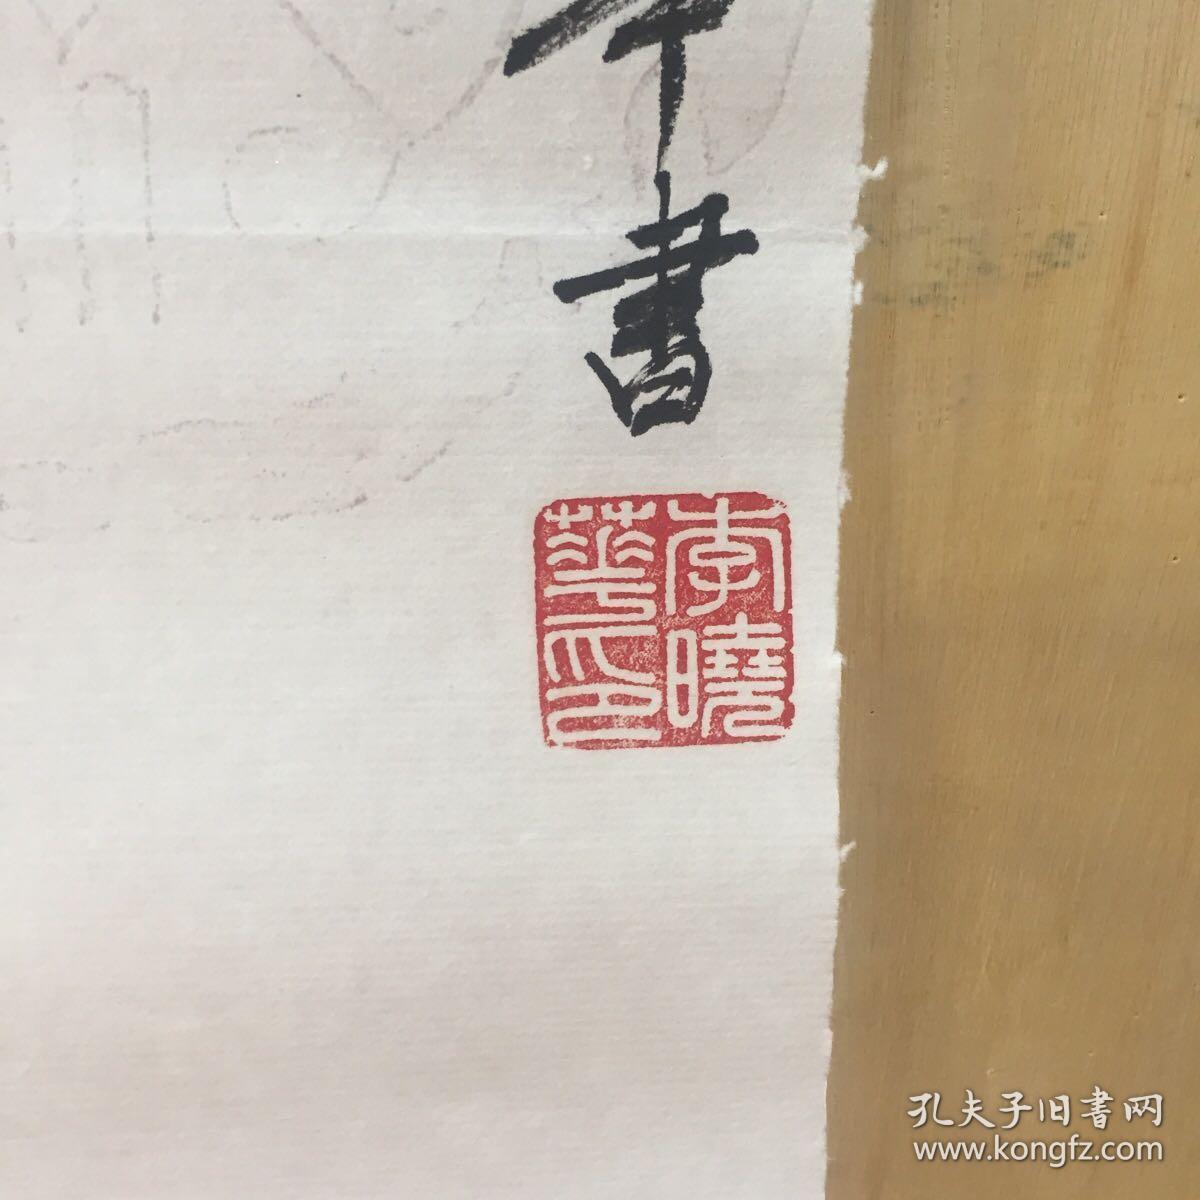 書
李曉
華印
孔夫子旧書网
www.kongfz.com